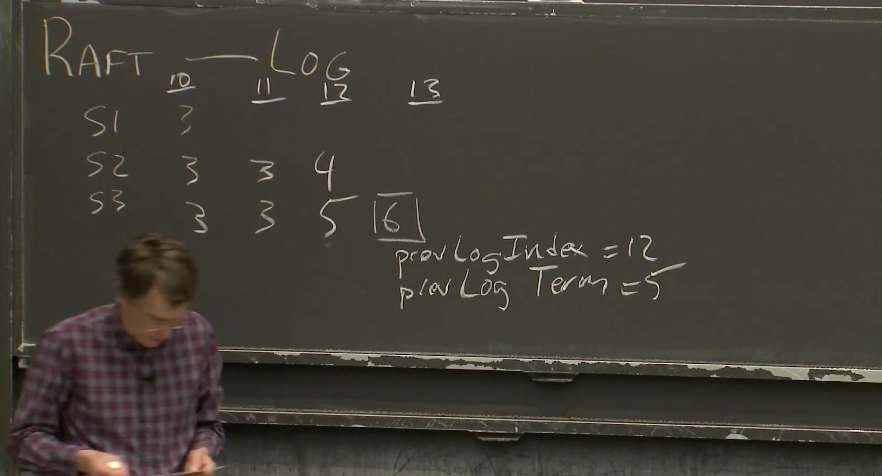 RAFT — LOG
10 11 12 13
S1 3
S2 3 3 4
S3 3 3 5 6
prevLogIndex = 12
prevLogTerm = 5